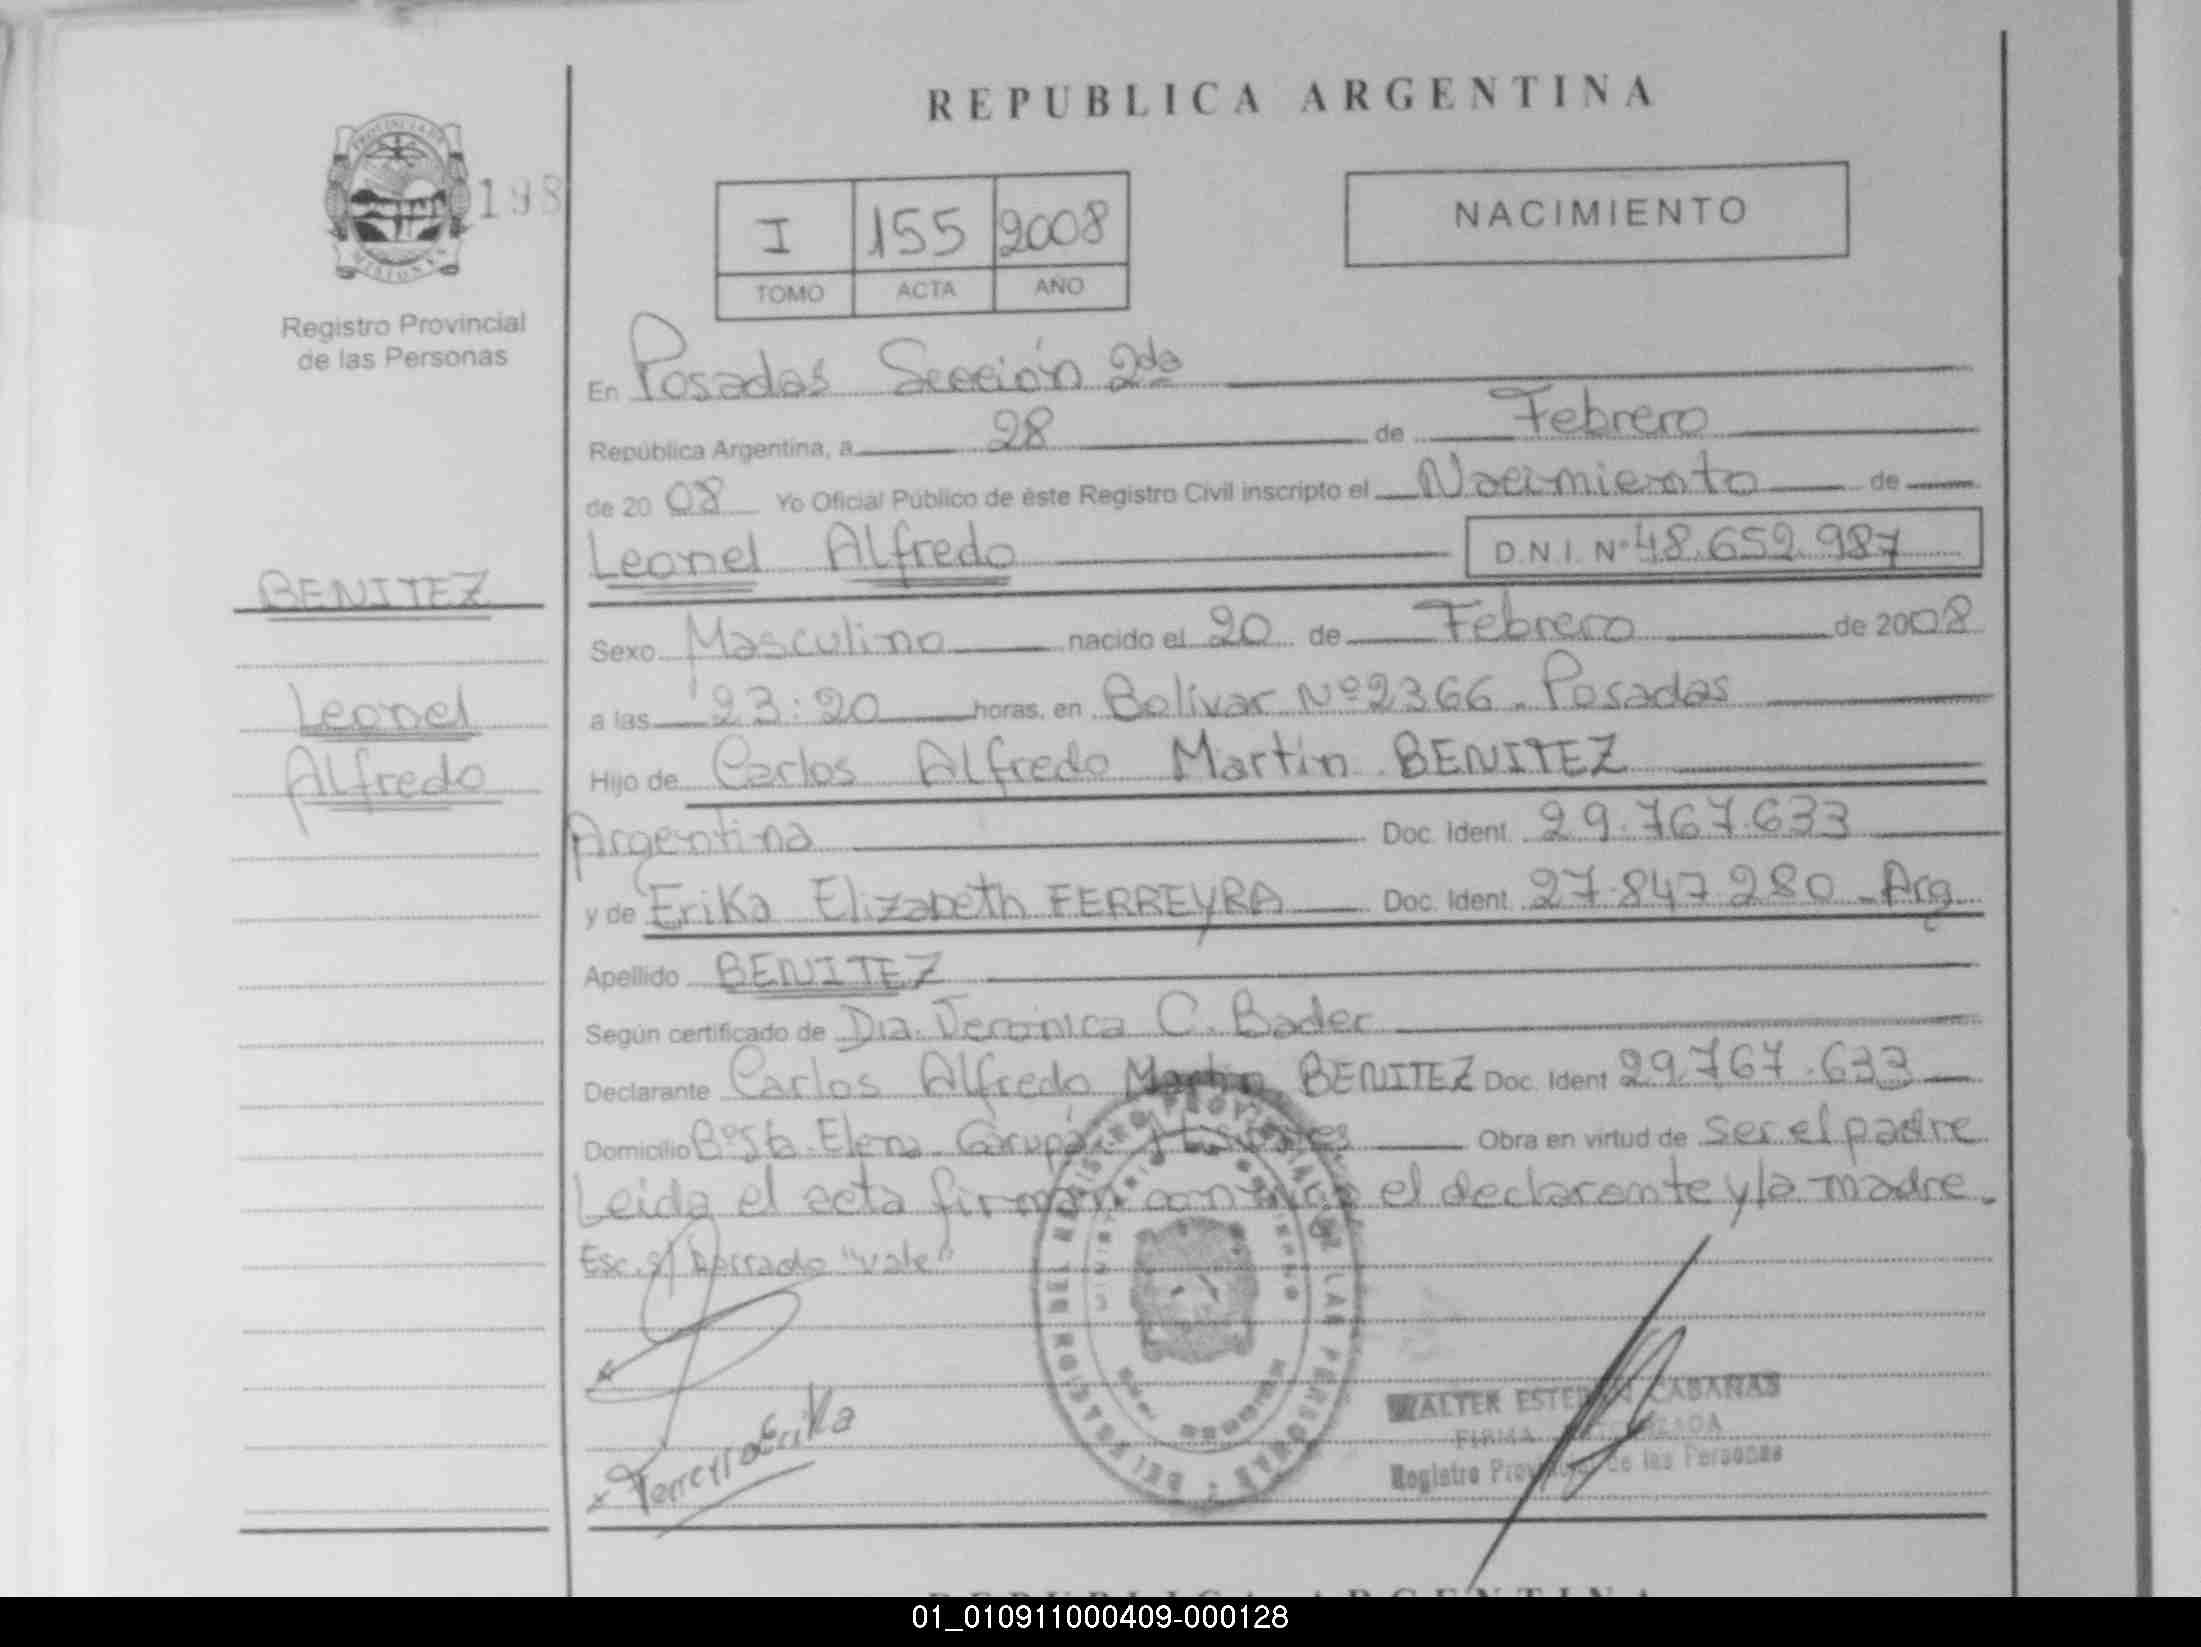 REPUBLICA ARGENTINA
PROVINCIA DE
MISIONES
198
Registro Provincial
de las Personas
I 155 2008
TOMO ACTA AÑO
NACIMIENTO
En Posadas Sección 2da
República Argentina, a 28 de Febrero
de 2008 Yo Oficial Público de éste Registro Civil inscripto el Nacimiento de
Leonel Alfredo D.N.I. Nº 48.652.987
BENITEZ
Leonel
Alfredo
Sexo Masculino nacido el 20 de Febrero de 2008
a las 23:20 horas, en Bolívar Nº 2366 - Posadas
Hijo de Carlos Alfredo Martín BENITEZ
Argentina Doc. Ident. 29.767.633
y de Erika Elizabeth FERREYRA Doc. Ident. 27.847.280 - Arg
Apellido BENITEZ
Según certificado de Dra. Veronica C. Bader
Declarante Carlos Alfredo Martin BENITEZ Doc. Ident 29.767.633
Domicilio Bº Sta. Elena Garupá Misiones Obra en virtud de ser el padre
Leida el acta firman conmigo el declarante y la madre.
Esc. s/ borrado "vale"
Ferreyra Erika
WALTER ESTEBAN CABAÑAS
FIRMA AUTORIZADA
Registro Provincial de las Personas
REPUBLICA ARGENTINA
01_010911000409-000128